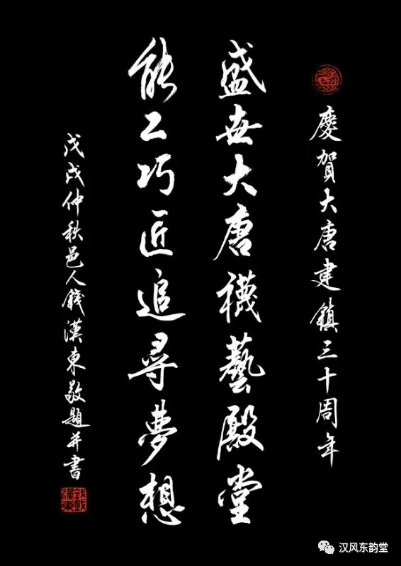 慶賀大唐建鎮三十周年
盛世大唐襪藝殿堂
能工巧匠追尋夢想
戊戌仲秋邑人錢漢東敬題并書
汉风东韵堂